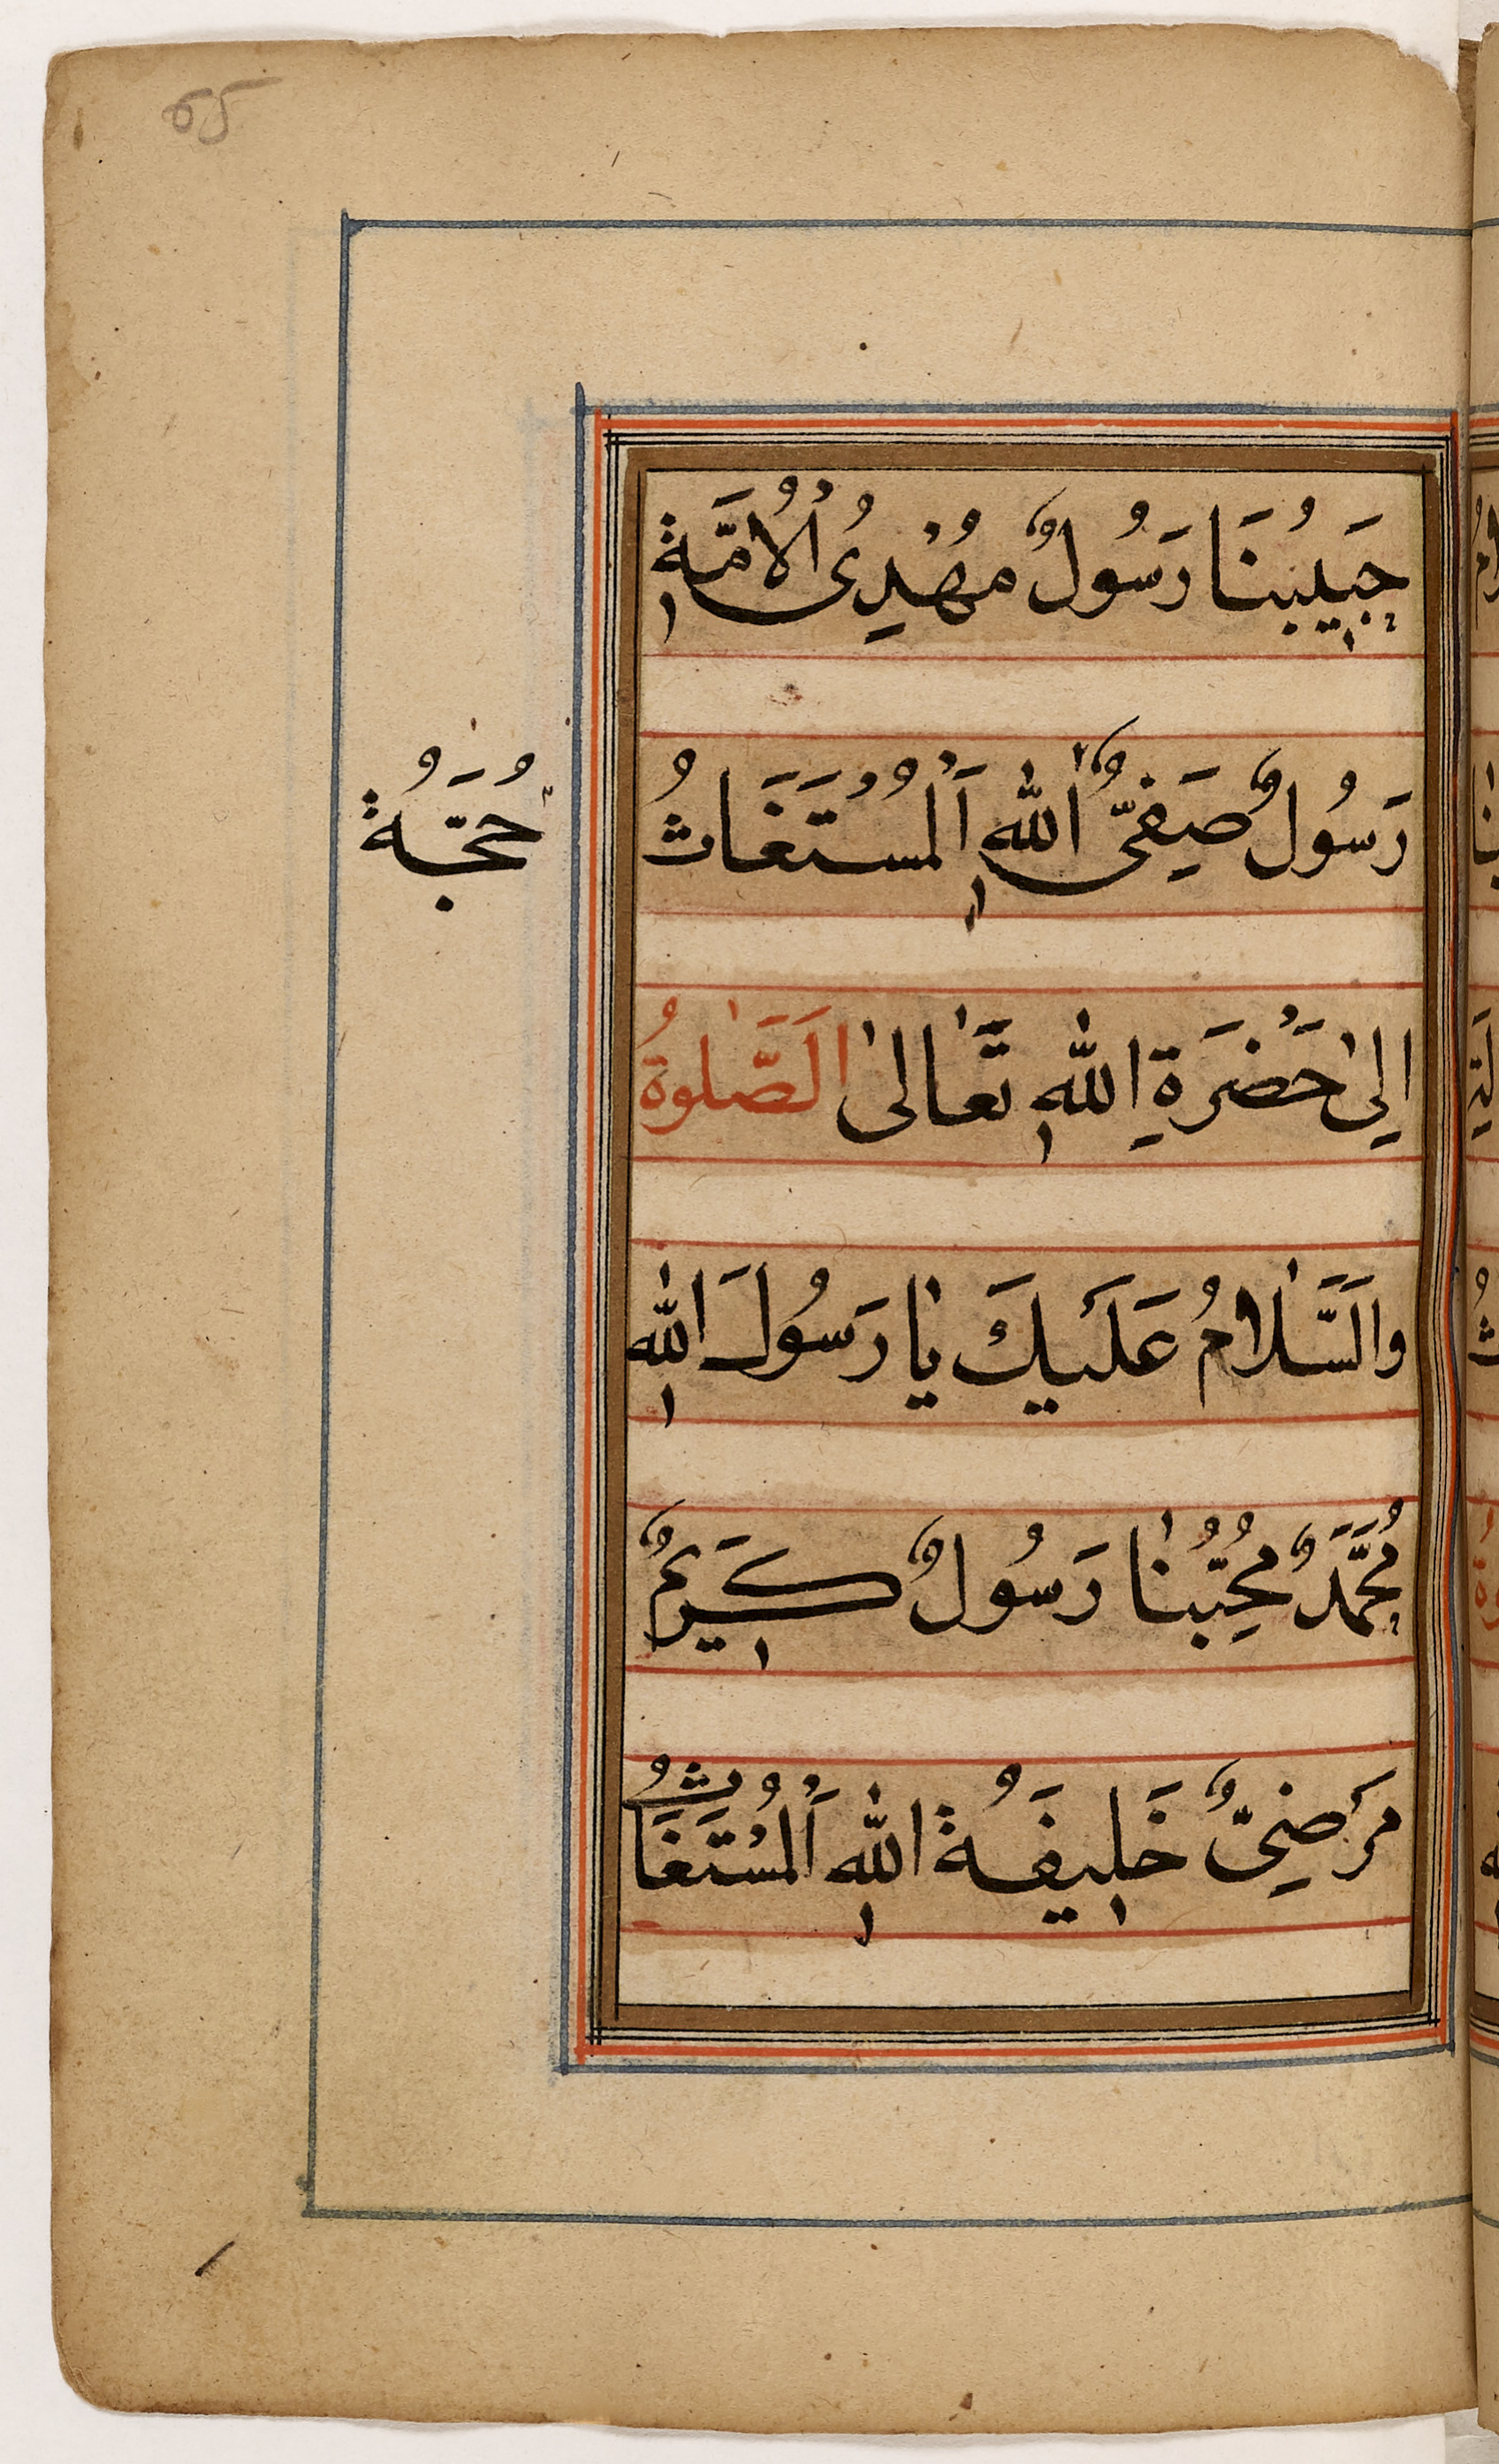 65
حَبِيبُنَا رَسُولٌ مُهْدِىُ الْاُمَّةِ
رَسُولٌ صَفِىُّ اللّٰهِ اَلْمُسْتَغَاثُ
حُجَّةُ
اِلىٰ حَضْرَةِ اللّٰهِ تَعَالىٰ اَلصَّلٰوةُ
وَالسَّلَامُ عَلَيْكَ يَا رَسُولَ اللّٰهِ
مُحَمَّدٌ مُحِبُّنَا رَسُولٌ كَرِيمٌ
مَرْضِىٌّ خَلِيفَةُ اللّٰهِ اَلْمُسْتَغَاثُ